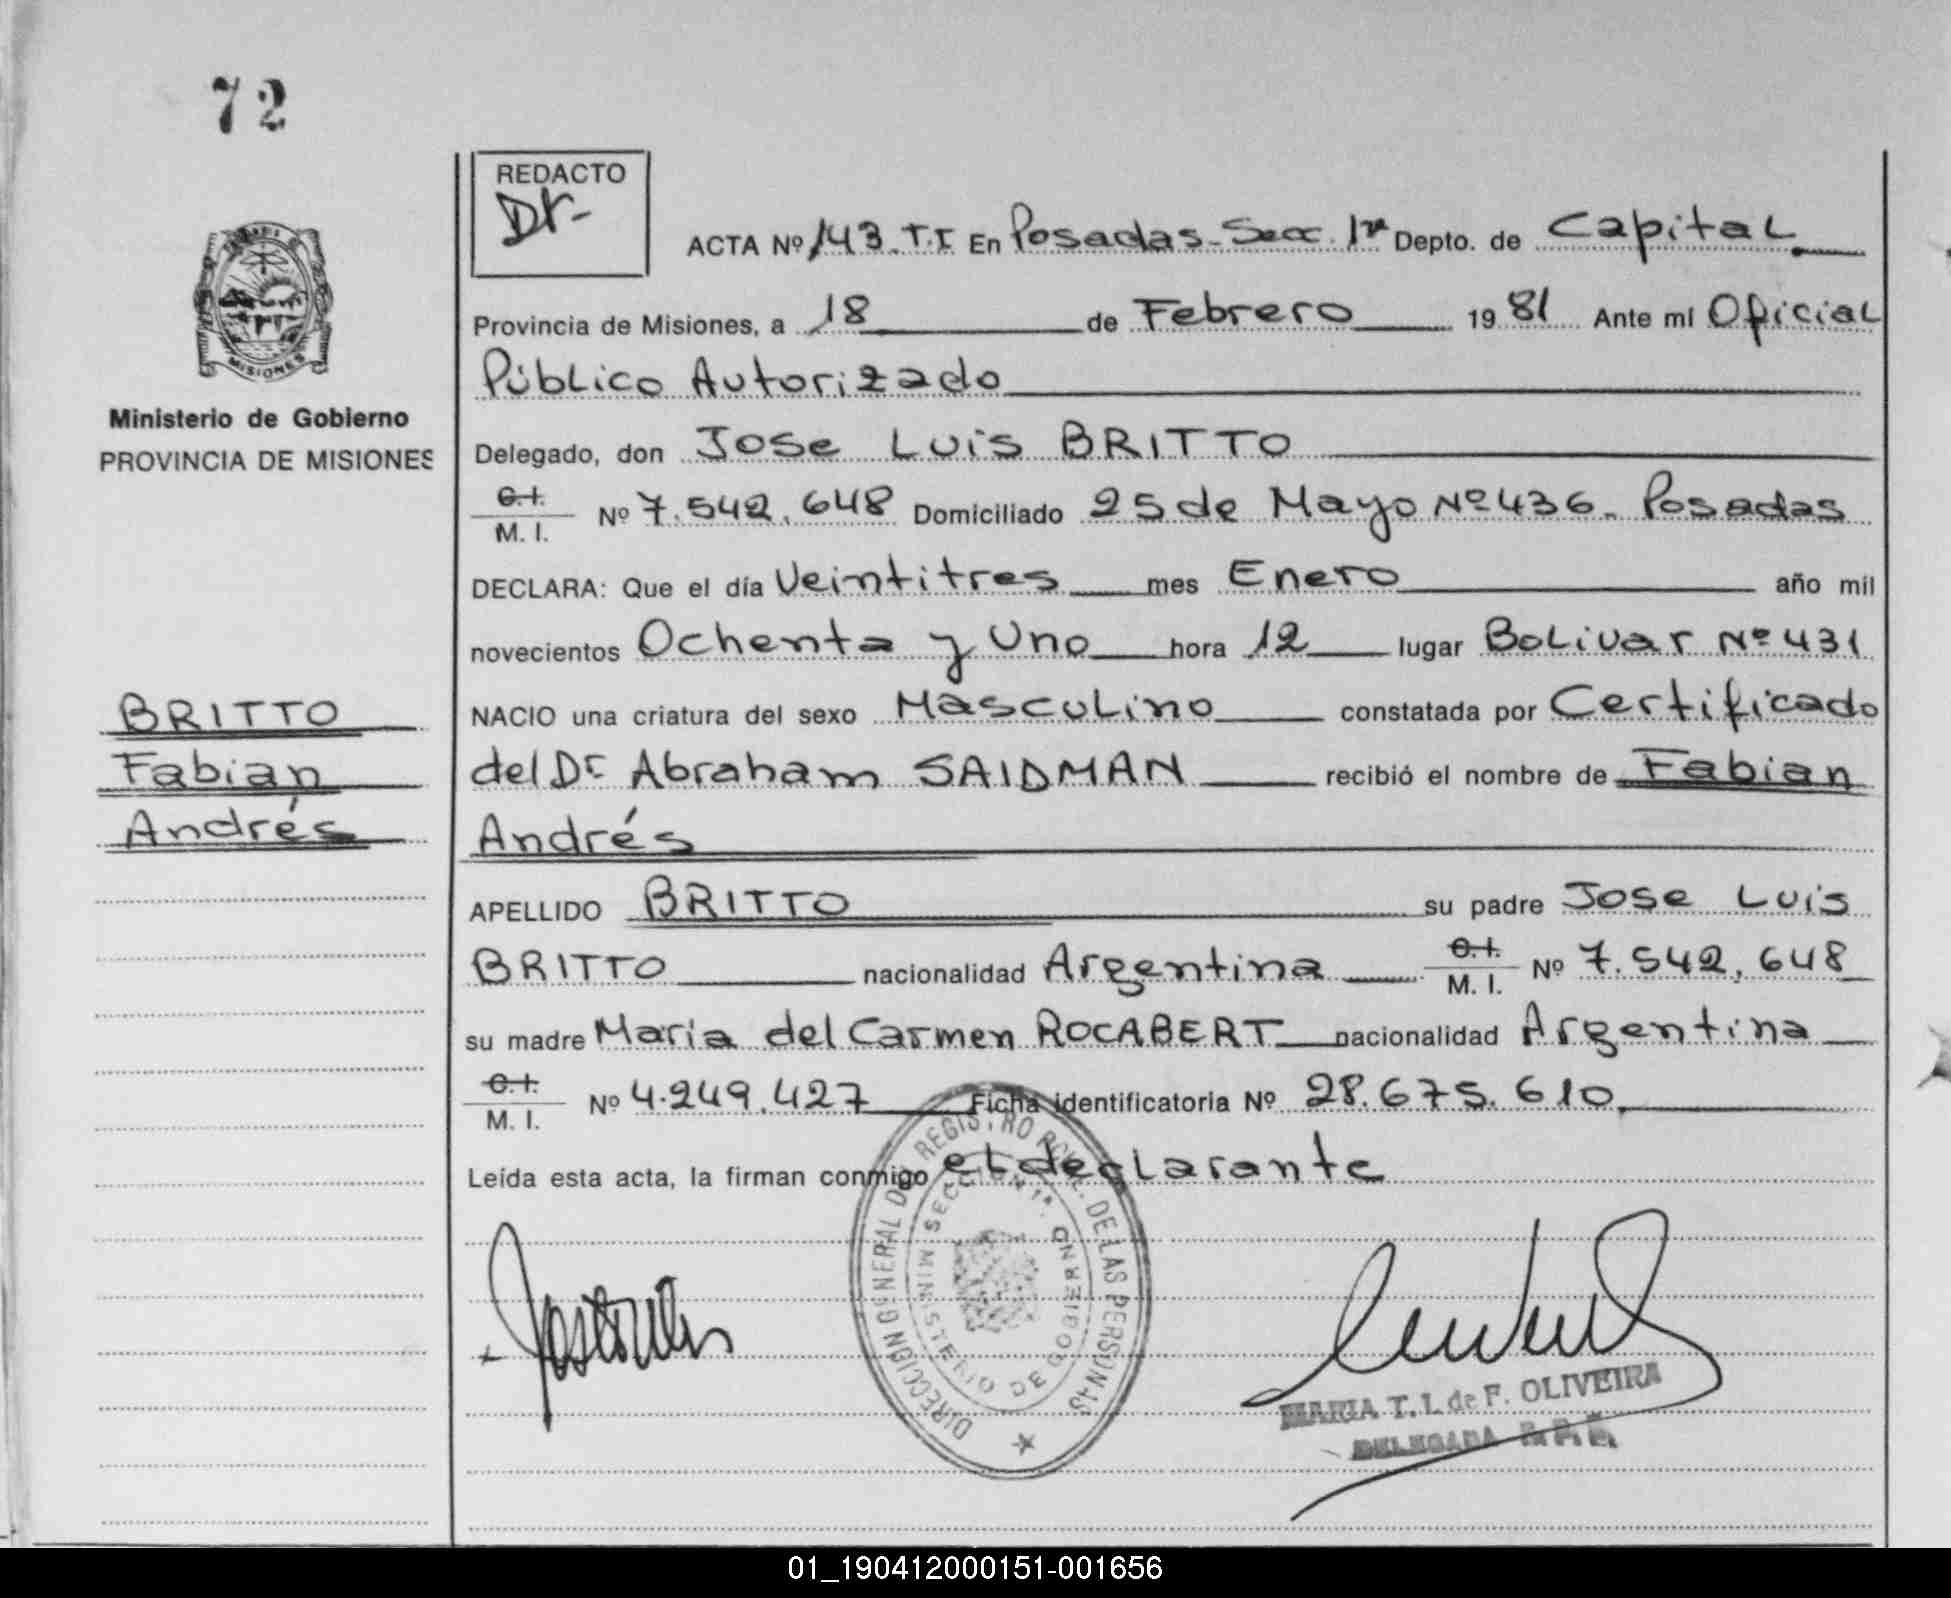 72
REDACTO
Dr-
ACTA Nº 143. T.I En Posadas-Secc. 1ra Depto. de Capital
Provincia de Misiones, a 18 de Febrero 1981 Ante mí Oficial
Público Autorizado
Ministerio de Gobierno
PROVINCIA DE MISIONES
Delegado, don Jose Luis BRITTO
C.I.
M. I. Nº 7.542.648 Domiciliado 25 de Mayo Nº 436. Posadas
DECLARA: Que el día Veintitres mes Enero año mil
novecientos Ochenta y Uno hora 12 lugar Bolivar Nº 431
BRITTO
Fabian
Andrés
NACIO una criatura del sexo Masculino constatada por Certificado
del Dr Abraham SAIDMAN recibió el nombre de Fabian
Andrés
APELLIDO BRITTO su padre Jose Luis
BRITTO nacionalidad Argentina C.I.
M. I. Nº 7.542.648
su madre Maria del Carmen ROCABERT nacionalidad Argentina
C.I.
M. I. Nº 4.249.427 Ficha identificatoria Nº 28.675.610
Leída esta acta, la firman conmigo el declarante
DIRECCIÓN GENERAL DEL REGISTRO DE LAS PERSONAS
MINISTERIO DE GOBIERNO
SECCION 1ª.
MARIA T. I. de F. OLIVEIRA
DELEGADA
MISIONES
01_190412000151-001656